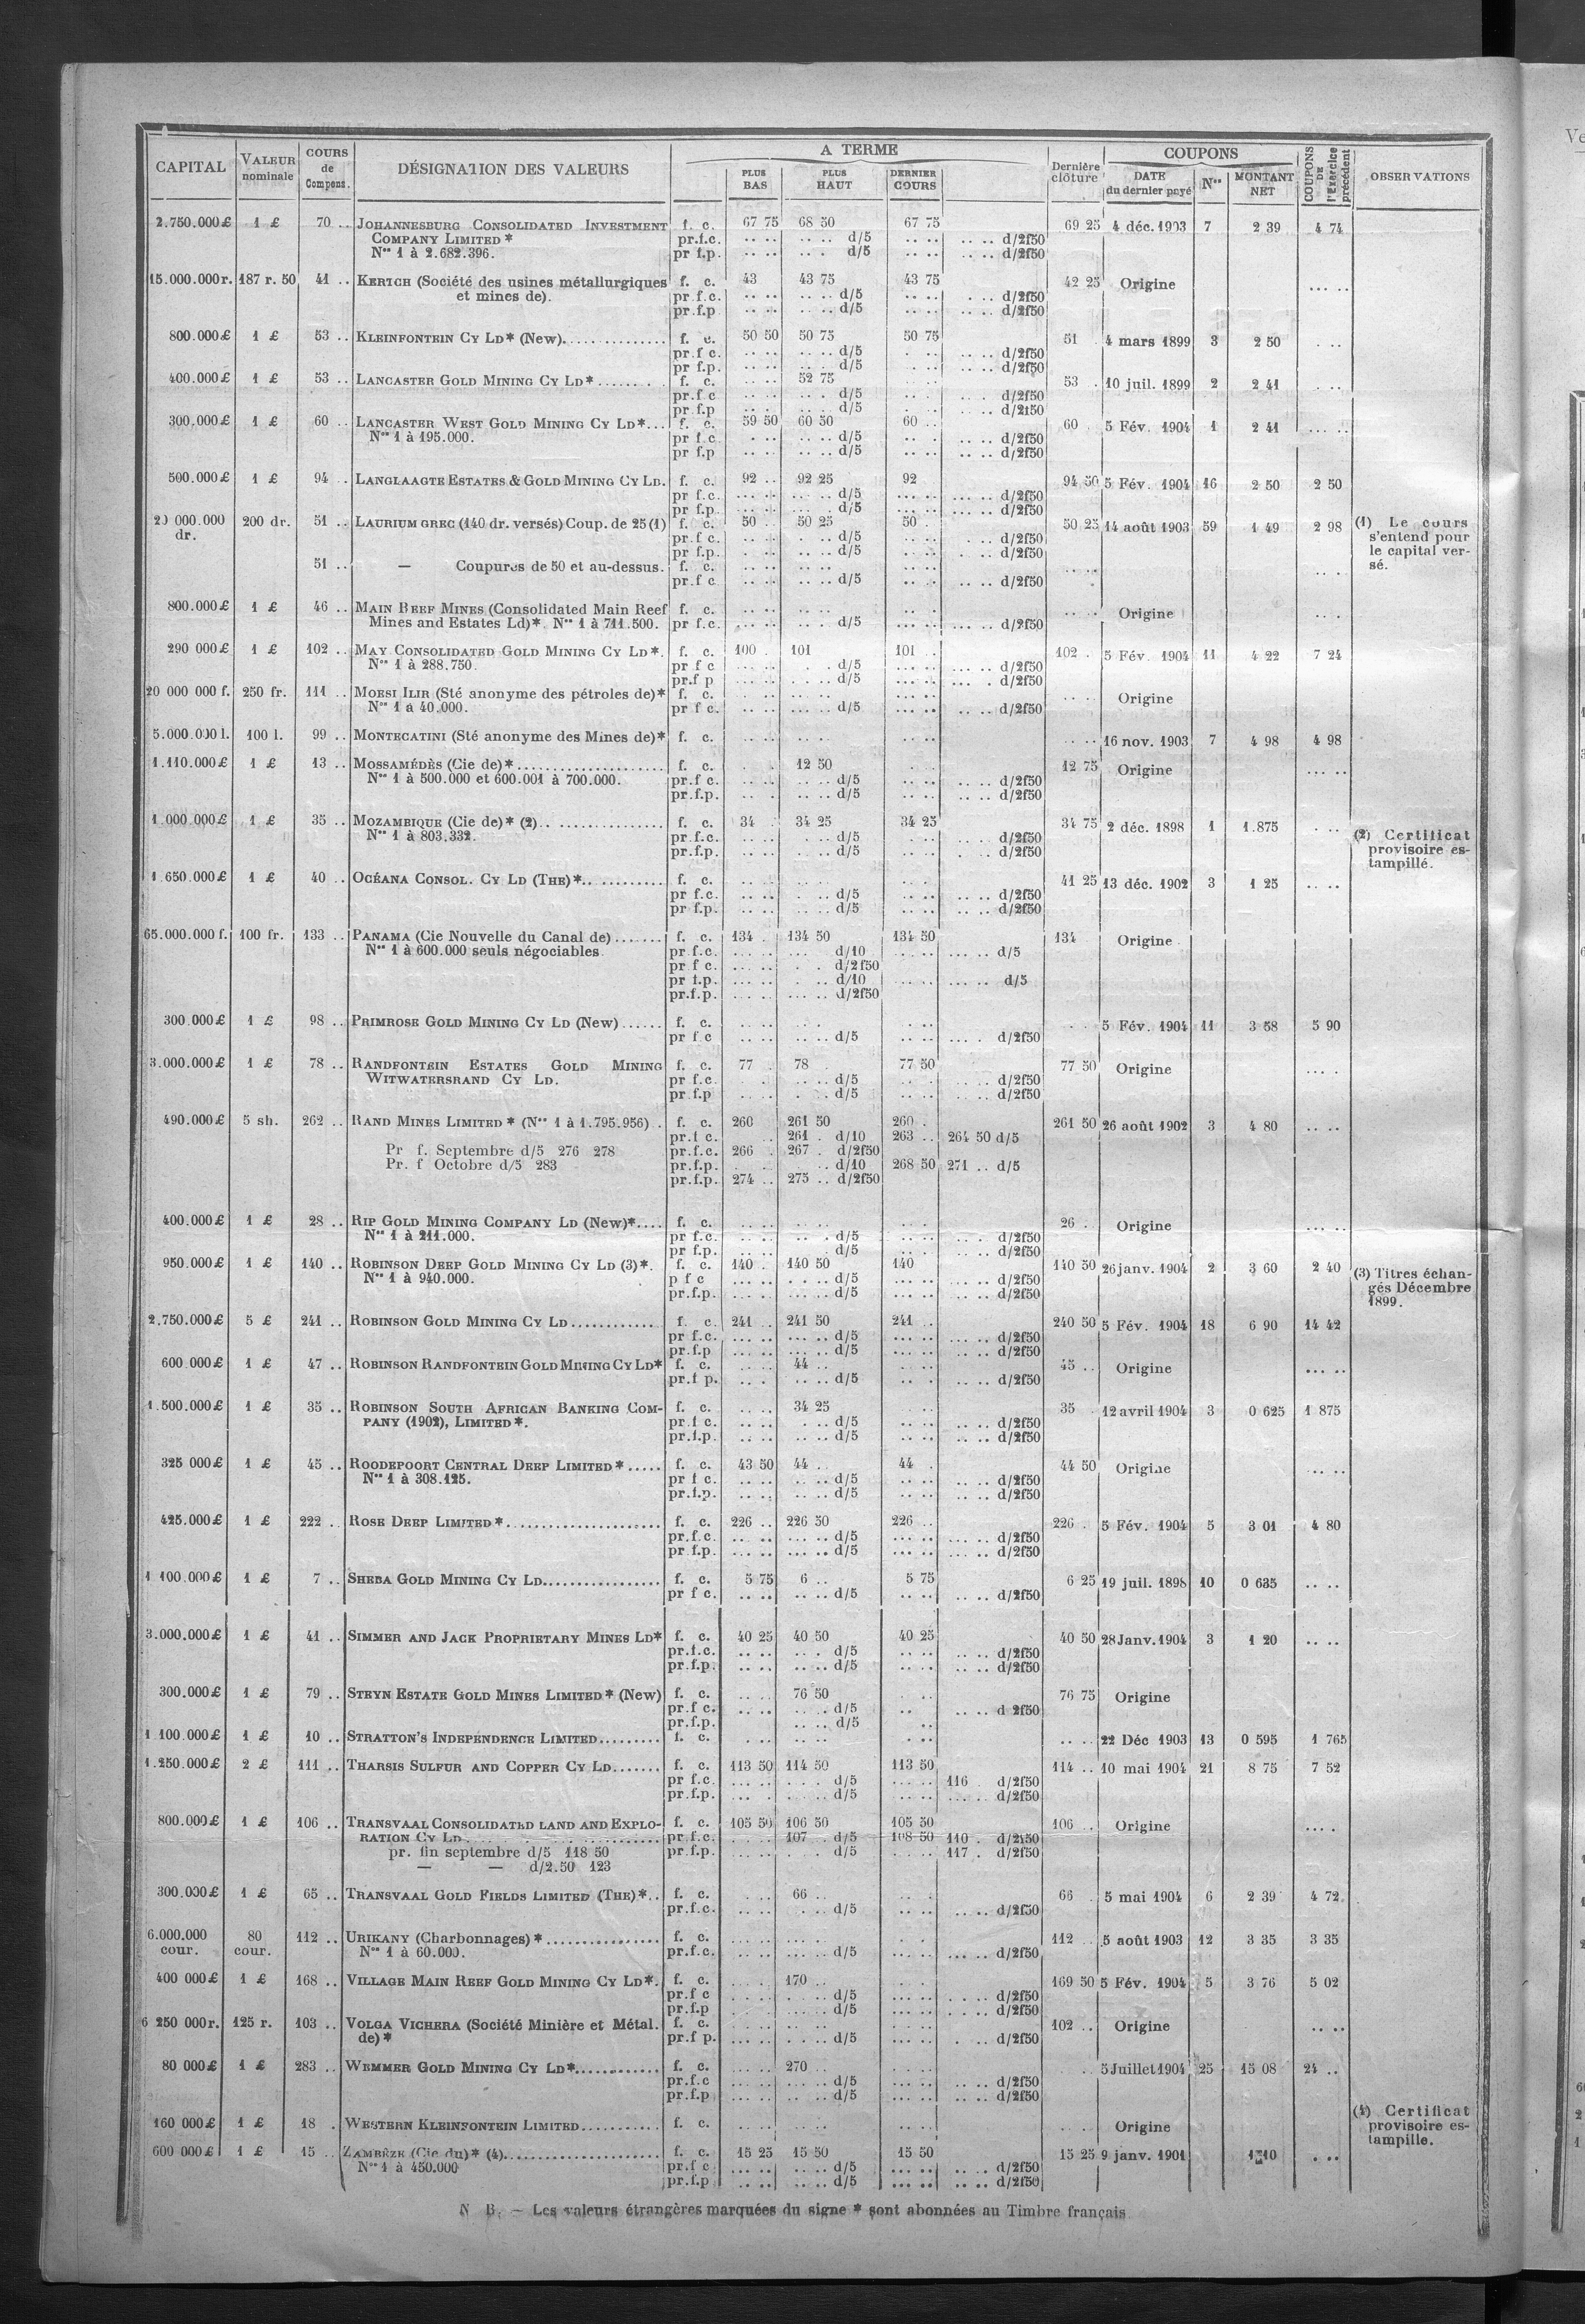 CAPITAL VALEUR nominale COURS de Compens. DÉSIGNATION DES VALEURS A TERME PLUS BAS PLUS HAUT DERNIER COURS Dernière clôture COUPONS DATE du dernier payé Nos MONTANT NET COUPONS DE l'Exercice précédent OBSERVATIONS
2.750.000£ 1 £ 70 .. JOHANNESBURG CONSOLIDATED INVESTMENT f. c. 67 75 68 50 67 75 69 25 4 déc. 1903 7 2 39 4 74
COMPANY LIMITED * pr.f.c. d/5 d/2f50
Nos 1 à 2.682.396. pr f.p. d/5 d/2f50
15.000.000r. 187 r. 50 41 .. KERTCH (Société des usines métallurgiques f. c. 43 43 75 43 75 42 25 Origine
et mines de). pr f.c. d/5 d/2f50
pr.f.p d/5 d/2f50
800.000£ 1 £ 53 .. KLEINFONTEIN CY LD* (New) f. c. 50 50 50 75 50 75 51 4 mars 1899 3 2 50
pr.f c. d/5 d/2f50
pr f.p. d/5 d/2f50
400.000£ 1 £ 53 .. LANCASTER GOLD MINING CY LD* f. c. 52 75 53 10 juil. 1899 2 2 41
pr.f c d/5 d/2f50
pr f.p d/5 d/2f50
300.000£ 1 £ 60 .. LANCASTER WEST GOLD MINING CY LD* f. c. 59 50 60 50 60 .. 60 5 Fév. 1904 1 2 41
Nos 1 à 195.000. pr f.c d/5 d/2f50
pr f.p d/5 d/2f50
500.000£ 1 £ 94 .. LANGLAAGTE ESTATES & GOLD MINING CY LD. f. c. 92 .. 92 25 92 94 50 5 Fév. 1904 16 2 50 2 50
pr f.c. d/5 d/2f50
pr f.p. d/5 d/2f50
20 000.000 dr. 200 dr. 51 .. LAURIUM GREC (140 dr. versés) Coup. de 25 (1) f. c. 50 .. 50 25 50 50 25 14 août 1903 59 1 49 2 98 (1) Le cours s'entend pour le capital versé.
pr.f c. d/5 d/2f50
pr f.p. d/5 d/2f50
51 .. — Coupures de 50 et au-dessus. f. c.
pr.f c d/5 d/2f50
800.000£ 1 £ 46 .. MAIN REEF MINES (Consolidated Main Reef f. c. Origine
Mines and Estates Ld)*. Nos 1 à 711.500. pr f.c. d/5 d/2f50
290 000£ 1 £ 102 .. MAY CONSOLIDATED GOLD MINING CY LD*. f. c. 100 101 101 102 5 Fév. 1904 11 4 22 7 24
Nos 1 à 288.750. pr f c d/5 d/2f50
pr.f p d/5 d/2f50
20 000 000 f. 250 fr. 111 .. MOESI ILIR (Sté anonyme des pétroles de)* f. c. Origine
Nos 1 à 40.000. pr f c. d/5 d/2f50
5.000.000 l. 100 l. 99 .. MONTECATINI (Sté anonyme des Mines de)* f. c. 16 nov. 1903 7 4 98 4 98
1.110.000£ 1 £ 13 .. MOSSAMÉDÈS (Cie de)* f. c. 12 50 12 75 Origine
Nos 1 à 500.000 et 600.001 à 700.000. pr.f c. d/5 d/2f50
pr.f.p. d/5 d/2f50
1.000.000£ 1 £ 35 .. MOZAMBIQUE (Cie de)* (2) f. c. 34 34 25 34 25 34 75 2 déc. 1898 1 1.875 (2) Certificat provisoire estampillé.
Nos 1 à 803.332. pr.f.c. d/5 d/2f50
pr.f.p. d/5 d/2f50
1.650.000£ 1 £ 40 .. OCÉANA CONSOL. CY LD (THE)* f. c. 41 25 13 déc. 1902 3 1 25
pr f.c. d/5 d/2f50
pr f.p. d/5 d/2f50
65.000.000 f. 100 fr. 133 .. PANAMA (Cie Nouvelle du Canal de) f. c. 134 134 50 134 50 134 Origine
Nos 1 à 600.000 seuls négociables pr.f.c. d/10 d/5
pr f c. d/2f50
pr f.p. d/10 d/5
pr.f.p. d/2f50
300.000£ 1 £ 98 .. PRIMROSE GOLD MINING CY LD (New) f. c. 5 Fév. 1904 11 3 58 5 90
pr f c d/5 d/2f50
3.000.000£ 1 £ 78 .. RANDFONTEIN ESTATES GOLD MINING f. c. 77 78 77 50 77 50 Origine
WITWATERSRAND CY LD. pr f.c. d/5 d/2f50
pr f.p d/5 d/2f50
490.000£ 5 sh. 262 .. RAND MINES LIMITED * (Nos 1 à 1.795.956) f. c. 260 261 50 260 261 50 26 août 1902 3 4 80
pr.f c. 261 . d/10 263 .. 264 50 d/5
Pr f. Septembre d/5 276 278 pr.f.c. 266 267 . d/2f50
Pr. f Octobre d/5 283 pr.f.p. d/10 268 50 271 .. d/5
pr.f.p. 274 .. 275 .. d/2f50
400.000£ 1 £ 28 .. RIP GOLD MINING COMPANY LD (New)* f. c. 26 Origine
Nos 1 à 211.000. pr f.c. d/5 d/2f50
pr f.p. d/5 d/2f50
950.000£ 1 £ 140 .. ROBINSON DEEP GOLD MINING CY LD (3)*. f. c. 140 140 50 140 140 50 26 janv. 1904 2 3 60 2 40 (3) Titres échangés Décembre 1899.
Nos 1 à 940.000. p f c d/5 d/2f50
pr.f.p. d/5 d/2f50
2.750.000£ 5 £ 241 .. ROBINSON GOLD MINING CY LD f. c. 241 .. 241 50 241 .. 240 50 5 Fév. 1904 18 6 90 14 42
pr f.c. d/5 d/2f50
pr.f.p d/5 d/2f50
600.000£ 1 £ 47 .. ROBINSON RANDFONTEIN GOLD MINING CY LD* f. c. 44 .. 45 .. Origine
pr.f p. d/5 d/2f50
1.500.000£ 1 £ 35 .. ROBINSON SOUTH AFRICAN BANKING COM- f. c. 34 25 35 12 avril 1904 3 0 625 1 875
PANY (1902), LIMITED*. pr.f c. d/5 d/2f50
pr.f.p. d/5 d/2f50
325 000£ 1 £ 45 .. ROODEPOORT CENTRAL DEEP LIMITED* f. c. 43 50 44 .. 44 44 50 Origine
Nos 1 à 308.125. pr f c. d/5 d/2f50
pr.f.p. d/5 d/2f50
425.000£ 1 £ 222 .. ROSE DEEP LIMITED* f. c. 226 .. 226 50 226 .. 226 5 Fév. 1904 5 3 01 4 80
pr.f.c. d/5 d/2f50
pr.f.p. d/5 d/2f50
1 100.000£ 1 £ 7 .. SHEBA GOLD MINING CY LD f. c. 5 75 6 .. 5 75 6 25 19 juil. 1898 10 0 635
pr f c. d/5 d/2f50
3.000.000£ 1 £ 41 .. SIMMER AND JACK PROPRIETARY MINES LD* f. c. 40 25 40 50 40 25 40 50 28 Janv. 1904 3 1 20
pr.f.c. d/5 d/2f50
pr.f.p. d/5 d/2f50
300.000£ 1 £ 79 .. STEYN ESTATE GOLD MINES LIMITED* (New) f. c. 76 50 76 75 Origine
pr.f c. d/5 d 2f50
pr.f.p. d/5
1 100.000£ 1 £ 10 .. STRATTON'S INDEPENDENCE LIMITED f. c. 22 Déc 1903 13 0 595 1 765
1.250.000£ 2 £ 111 .. THARSIS SULFUR AND COPPER CY LD f. c. 113 50 114 50 113 50 114 .. 10 mai 1904 21 8 75 7 52
pr f.c. d/5 116 . d/2f50
pr.f.p. d/5 d/2f50
800.000£ 1 £ 106 .. TRANSVAAL CONSOLIDATED LAND AND EXPLO- f. c. 105 50 106 50 105 50 106 .. Origine
RATION CY LD pr.f.c. 107 . d/5 108 50 110 . d/2f50
pr. fin septembre d/5 118 50 pr.f.p. d/5 117 . d/2f50
— — d/2.50 123
300.000£ 1 £ 65 .. TRANSVAAL GOLD FIELDS LIMITED (THE)* f. c. 66 .. 66 5 mai 1904 6 2 39 4 72
pr.f.c. d/5 d/2f50
6.000.000 cour. 80 cour. 112 .. URIKANY (Charbonnages)* f. c. 112 5 août 1903 12 3 35 3 35
Nos 1 à 60.000. pr.f.c. d/5 d/2f50
400 000£ 1 £ 168 .. VILLAGE MAIN REEF GOLD MINING CY LD*. f. c. 170 .. 169 50 5 Fév. 1904 5 3 76 5 02
pr.f c d/5 d/2f50
pr.f.p d/5 d/2f50
6 250 000r. 125 r. 103 .. VOLGA VICHERA (Société Minière et Métal. f. c. 102 .. Origine
de)* pr.f p. d/5 d/2f50
80 000£ 1 £ 283 .. WEMMER GOLD MINING CY LD* f. c. 270 .. 5 Juillet 1904 25 15 08 24 ..
pr.f.c d/5 d/2f50
pr.f.p d/5 d/2f50
160 000£ 1 £ 18 . WESTERN KLEINFONTEIN LIMITED f. c. Origine (4) Certificat provisoire estampille.
600 000£ 1 £ 15 .. ZAMBÈZE (Cie du)* (4) f. c. 15 25 15 50 15 50 15 25 9 janv. 1901
Nos 1 à 450.000 pr.f c d/5 d/2f50
pr.f.p d/5 d/2f50
N B. — Les valeurs étrangères marquées du signe * sont abonnées au Timbre français